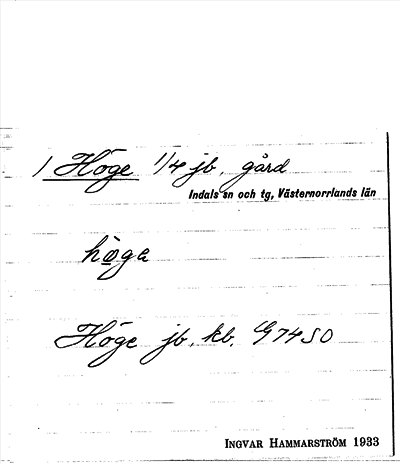 1 Höge 1/4 jb. gård
Indals sn och tg, Västernorrlands län
hø̀ga
Höge jb. kb. G74SO
INGVAR HAMMARSTRÖM 1933